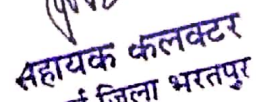 सहायक कलक्टर
जिला भरतपुर